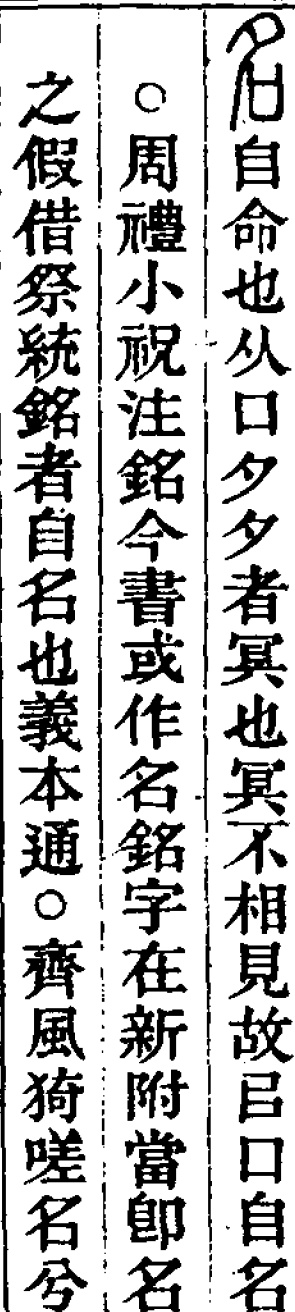 名自命也从口夕夕者冥也冥不相見故㠯口自名
○周禮小祝注銘今書或作名銘字在新附當卽名
之假借祭統銘者自名也義本通○齊風猗嗟名兮